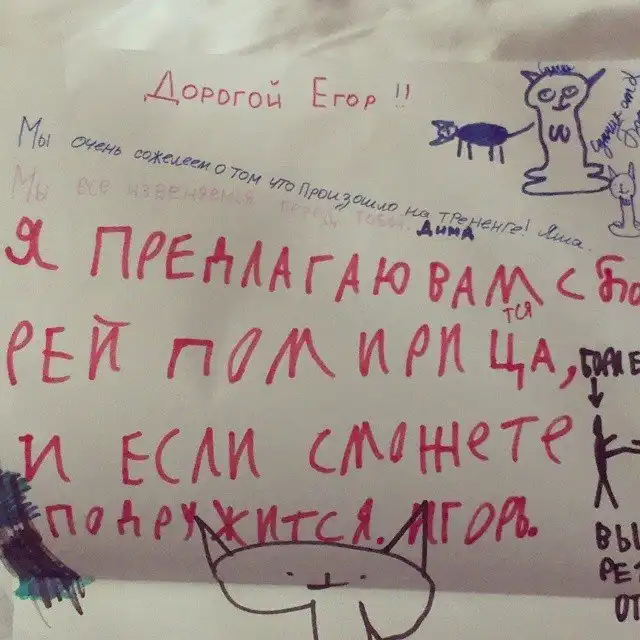 Дорогой Егор!!
Мы очень сожелеем о том что произошло на трененге! Яша.
Мы все извеняемся перед тобой. Дима
Я ПРЕДЛАГАЮ ВАМ С БО
РЕЙ ПОМИРИЦА, тся
И ЕСЛИ СМОЖЕТЕ
ПОДРУЖИТСЯ. ИГОРЬ.
БОРИ Е
ВЫ
РЕ
ОТ